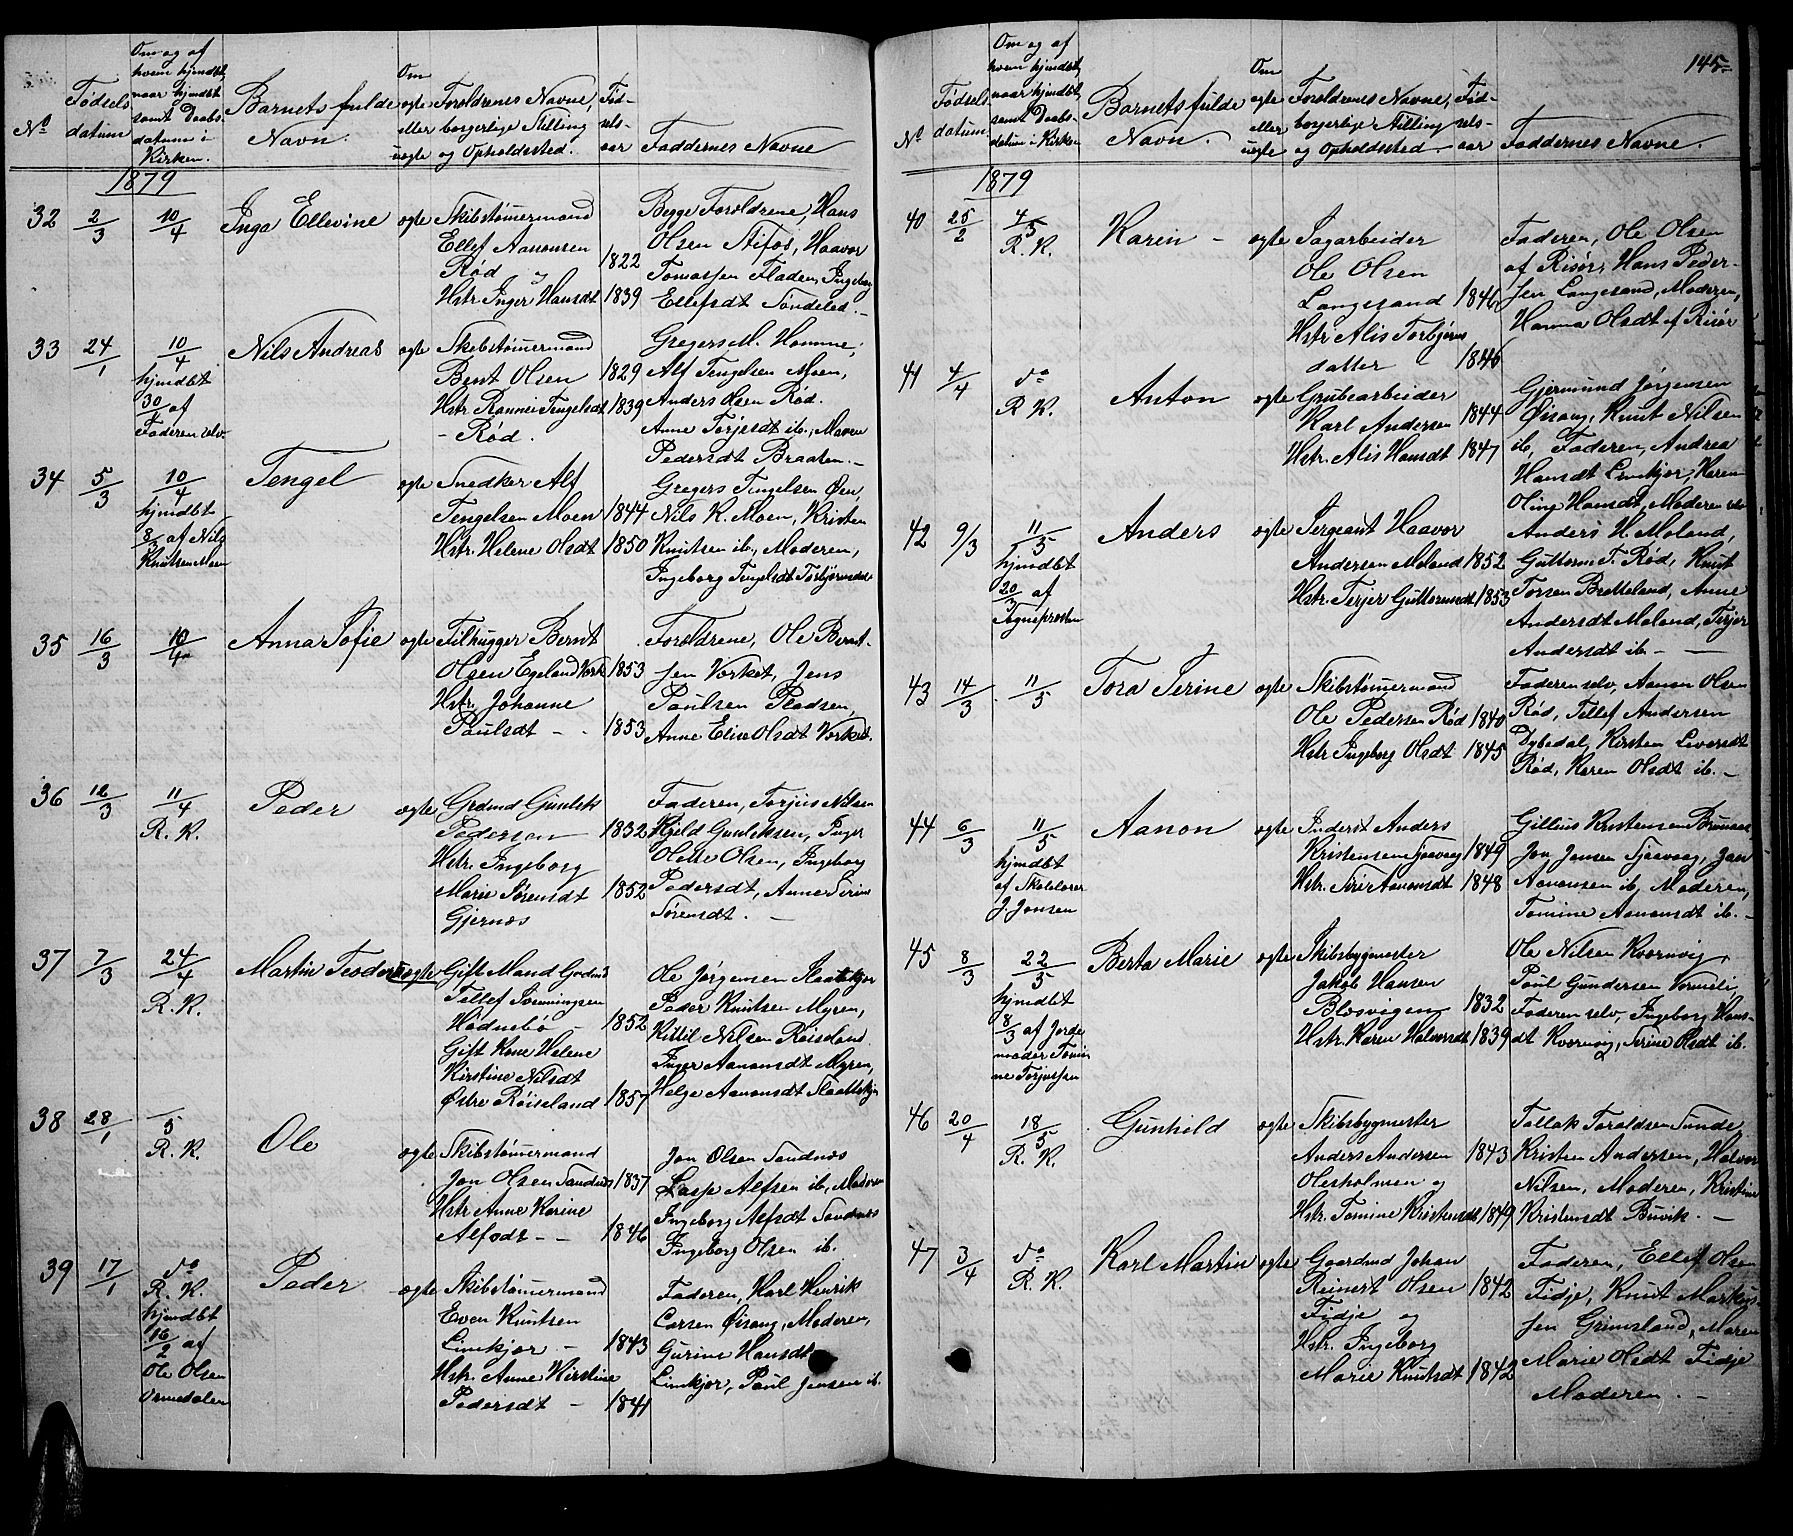 145
Om og af
hvem hjmdbt,
naar hjmdbt
samt Daabs-
datum i
Kirken.
No
Fødsels
datum
Barnets fulde
Navn.
Om
ægte
eller
uægte
Forældrenes Navne,
borgerlige Stilling
og Opholdssted.
Fød-
sels-
aar
Faddernes Navne
1879
32 2/3 10/4 Inga Ellevine ægte Skibstømermand
Ellef Aanonsen
Rød og 1822
Hstr Inger Hansdt 1839
Begge Forældrene, Hans
Olsen Stifos, Haavor
Tomassen Fladen, Ingeborg
Ellefsdt Søndeled.
33 24/1 10/4
hjmdbt
30/1 af
Faderen selv
Nils Andreas ægte Skibstømermand
Bent Olsen 1829
Hstr Rannei Tengelsdt 1839
- Rød.
Gregers M. Homme,
Alf Tengelsen Moen,
Anders Olsen Rød.
Anne Torjesdt ib., Maren
Pedersdt Braaten.
34 5/3 10/4
hjmdbt
8/3 af Nils
Knutsen Moen
Tengel ægte Snedker Alf
Tengelsen Moen 1844
Hstr. Helene Olsdt 1850
Gregers Tengelsen Øen,
Nils K. Moen, Kristen
Knutsen ib., Moderen,
Ingeborg Tengelsdt
35 16/3 10/4 Anna Sofie ægte Tilhugger Bernt
Olsen Egeland Værk 1853
Hstr. Johanne
Paulsdt - 1853
Forældrene, Ole Bernt-
sen Værket, Jens
Paulsen Pladsen,
Anne Elise Olsdt Værket.
36 12/3 11/4
R. K.
Peder ægte Grdmd Gunlek
Pedersen 1832
Hstr. Ingeborg
Marie Sørensdt 1852
Gjernæs
Faderen, Torjus Nilsen
Kjeld Gunleksen, Inger
Olette Olsen, Ingeborg
Pedersdt, Anne Serine
Sørensdt.
37 7/3 24/4
R. K.
Martin uægte Gift Mand Grdmd
Tellef Svenningsen
Hødnebø 1852
Gift Kone Helene
Kirstine Nilsdt
Østre Røiseland 1857
Ole Jørgensen
Peder Knutsen Myren,
Kittil Nilsen Røiseland.
Inger Aanonsdt Myren,
Helge Aanonsdt
38 28/1 /5
R. K.
Ole ægte Skibstømermand
Jon Olsen Sandnæs 1837
Hstr Anne Karine
Alfsdt - - 1846
Jon Olsen Sandnæs
Alfsen ib, Moderen
Ingeborg Alfsdt Sandnæs
Ingeborg Olsen ib.
39 17/1 do
R. K.
hjmdbt
16/2 af
Ole Olsen
Peder ægte Skibstømermand
Even Knutsen
Limkjær - 1843
Hstr. Anne Kirstine
Pedersdt - 1841
Faderen, Karl Henrik
Larsen Øisang, Moderen,
Gurine Hansdt
Limkjær, Paul Jensen ib.
Om og af
hvem hjmdbt,
naar hjmdbt
samt Daabs-
datum i Kirken
No
Fødsels
datum.
Barnets fulde
Navn.
Om
ægte
eller
uægte
Forældrenes Navne,
borgerlige Stilling
og Opholdssted.
Fød-
sels-
aar
Faddernes Navne.
1879
40 25/2 4/5
R. K.
Karin - ægte Sagarbeider
Ole Olsen
Langesand 1846
Hstr Alis Torbjørns
datter 1846
Faderen, Ole Olsen
af Risør, Hans Peder-
sen Langesand, Moderen,
Hanna Olsdt af Risør
41 4/4 do
R. K.
Anton ægte Grubearbeider
Karl Andersen 1844
Hstr. Alis Hansdt 1847
Gjermund Jørgensen
Øisang, Knut Nilsen
ib, Faderen, Andrea
Hansdt Limkjær, Karen
Oline Hansdt, Moderen selv
42 9/3 11/5
hjmdbt
20/3 af
Sognepresten
Anders ægte Sergeant Haavor
Andersen Moland 1852
Hstr. Terjer Guttormsdt 1853
Anders H. Moland,
Guttorm T. Rød, Knut
Torsen Bratteland, Anne
Andersdt Moland, Terjer
Andersdt ib. -
43 14/3 11/5 Tora Serine ægte Skibstømermand
Ole Pedersen Rød 1840
Hstr Ingeborg Olsdt 1845
Faderen selv, Aanon Olsen
Rød, Tellef Andersen
Dybedal, Kirsten
Rød, Karen Olsdt ib. -
44 6/3 11/5
hjmdbt
af Skolelærer
J. Jonsen
Aanon ægte Inderst Anders
Kristensen Sjaavaag 1849
Hstr. Siri Aanonsdt 1848
Gillius Kristensen
Jon Jonsen Sjaavaag, Jon
Aanonsen ib, Moderen,
Tomine Aanonsdt ib. -
45 8/3 22/5
hjmdbt
8/3 af Jorde
moder Tomi
ne Torjussen
Berta Marie ægte Skibsbygmester
Jakob Hansen
Blæsvigen 1832
Hstr. Karen Halvorsdt 1839
Ole Nilsen Kværnvig,
Paul Gundersen Vormeli,
Faderen selv, Ingeborg Hans-
dt Kværnvig, Serine Olsdt ib.
46 20/4 18/5
R. K.
Gunhild ægte Skibsbygmester
Anders Andersen 1843
Olesholmen og
Hstr. Tomine Kristensdt 1849
Tallak Taraldsen Sunde,
Kristen Andersen, Halvor
Nilsen, Moderen, Kristine
Kristensdt Buvik. -
47 3/4 do
R. K.
Karl Martin ægte Gaardmd Johan
Reinert Olsen 1842
Fidje og
Hstr. Ingeborg
Marie Knutsdt 1842
Faderen, Ellef Olsen
Fidje, Knut Markus-
sen Grimsland, Maren
Marie Olsdt Fidje
Moderen. -